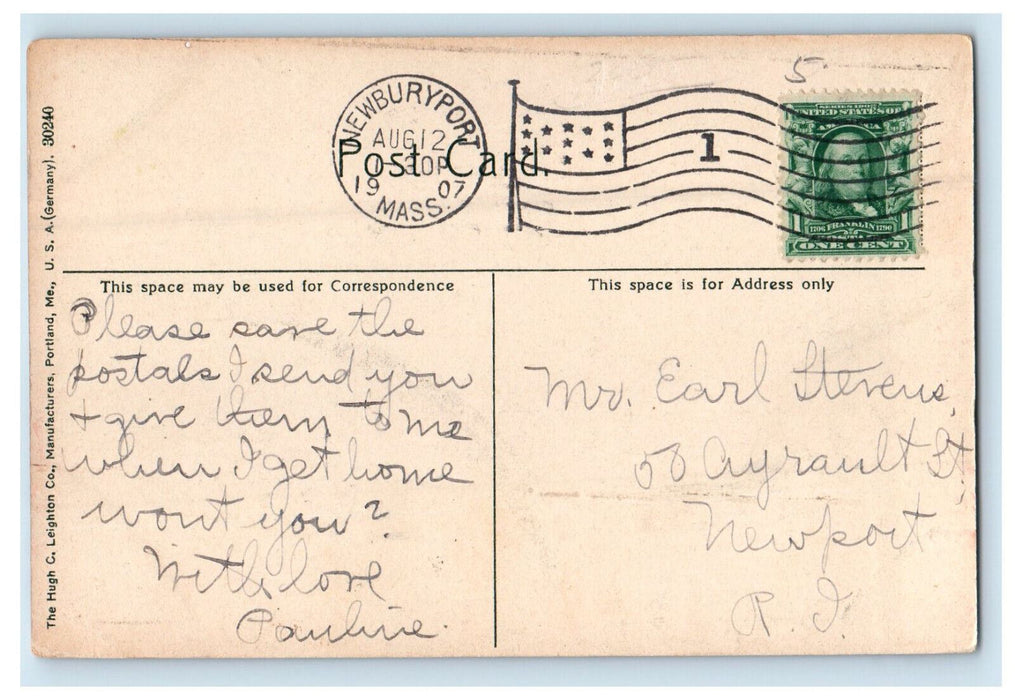 5
NEWBURYPORT
AUG 12
30P
19 07
MASS.
1
SERIES 1902
UNITED STATES OF
AMERICA
1706 FRANKLIN 1790
POSTAGE
ONE CENT
Post Card.
The Hugh C. Leighton Co., Manufacturers, Portland, Me., U. S. A. (Germany). 30240
This space may be used for Correspondence
Please save the
postals I send you
+ give them to me
when I get home
wont you?
With love
Pauline.
This space is for Address only
Mr. Earl Stevens,
58 Ayrault St
Newport
R. I.